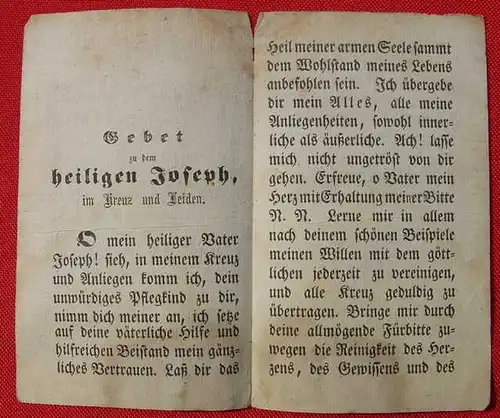 Gebet
zu dem
heiligen Joseph,
im Kreuz und Leiden.
O mein heiliger Vater
Joseph! sieh, in meinem Kreuz
und Anliegen komm ich, dein
unwürdiges Pflegkind zu dir,
nimm dich meiner an, ich setze
auf deine väterliche Hilfe und
hilfreichen Beistand mein gänz-
liches Vertrauen. Laß dir das
Heil meiner armen Seele sammt
dem Wohlstand meines Lebens
anbefohlen sein. Ich übergebe
dir mein Alles, alle meine
Anliegenheiten, sowohl inner-
liche als äußerliche. Ach! lasse
mich nicht ungetröst von dir
gehen. Erfreue, o Vater mein
Herz mit Erhaltung meiner Bitte
N. N. Lerne mir in allem
nach deinem schönen Beispiele
meinen Willen mit dem gött-
lichen jederzeit zu vereinigen,
und alle Kreuz geduldig zu
übertragen. Bringe mir durch
deine allmögende Fürbitte zu-
wegen die Reinigkeit des Her-
zens, des Gewissens und des